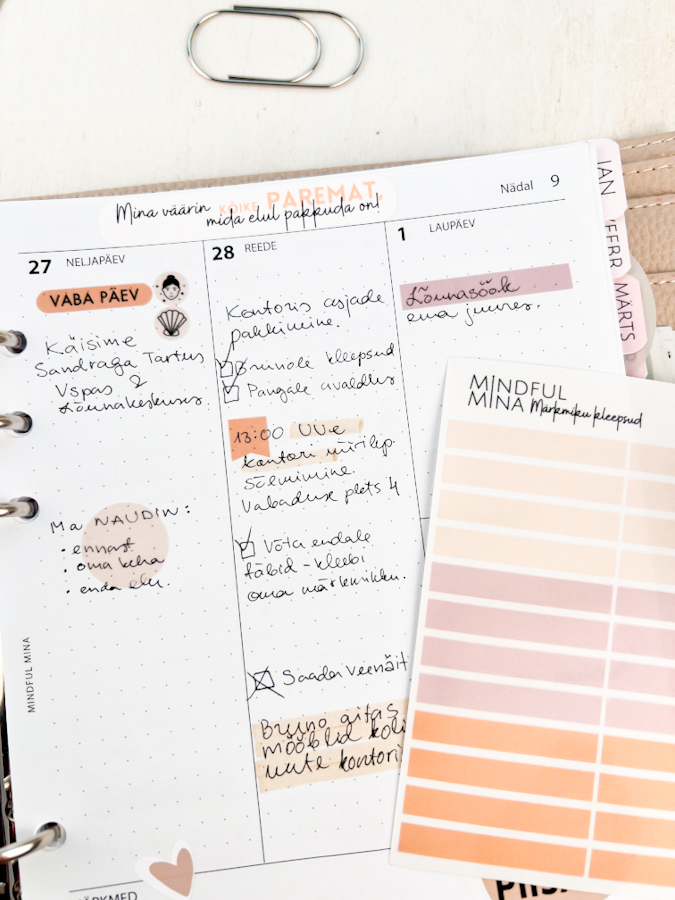 Mina väärin KÕIKE PAREMAT,
mida elul pakkuda on!
Nädal 9
27 NELJAPÄEV
VABA PÄEV
Käisime
Sandraga Tartus
Vspas &
Lõunakeskuses
Ma NAUDIN:
• ennast
• oma keha
• enda elu.
MINDFUL MINA
28 REEDE
Kontoris asjade
pakkimine.
Brunole kleepsud
Pangale avaldus
13:00 UUe
kontori üürilep.
sõlmimine.
Vabaduse plats 4
Võta endale
täbid - kleebi
oma märkmikku.
Saada veenäit
Bruno aitas
mööblid
uute kontori
1 LAUPÄEV
Lõunasöök
ema juures.
JAN
MÄRTS
MINDFUL
MINA Märkmiku kleepsud